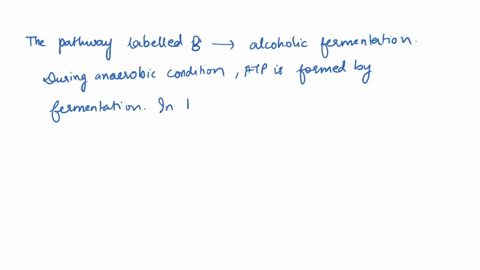 The pathway labelled B → alcoholic fermentation.
During anaerobic condition, ATP is formed by
fermentation. In